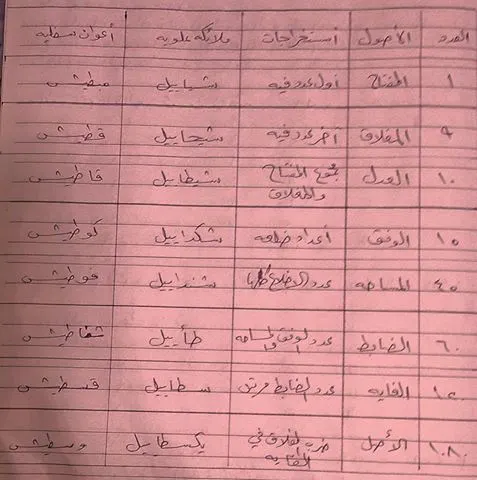 العدد الأصول أستخراجات ملائكة علويه أعوان سفليه
١ المفتاح أول عدد فيه شياييل مبطيش
٩ المغلاق آخر عدد فيه شيحاييل قطيش
١٠ العدل مجموع المفتاح والمغلاق شيطاييل قاطيش
١٥ الوفق أعداد ضلعه شكداييل كوطيش
٤٥ المساحه عدد الاضلاع شنداييل فوطيش
٦٠ الضابط عدد الوفق والمساحه طأييل شفاطيش
١٢٠ الغايه عدد الضابط مرتين سطاييل قسطيش
١٠٨٠ الأصل ضرب المغلاق في الغايه يكسطاييل وسطيش